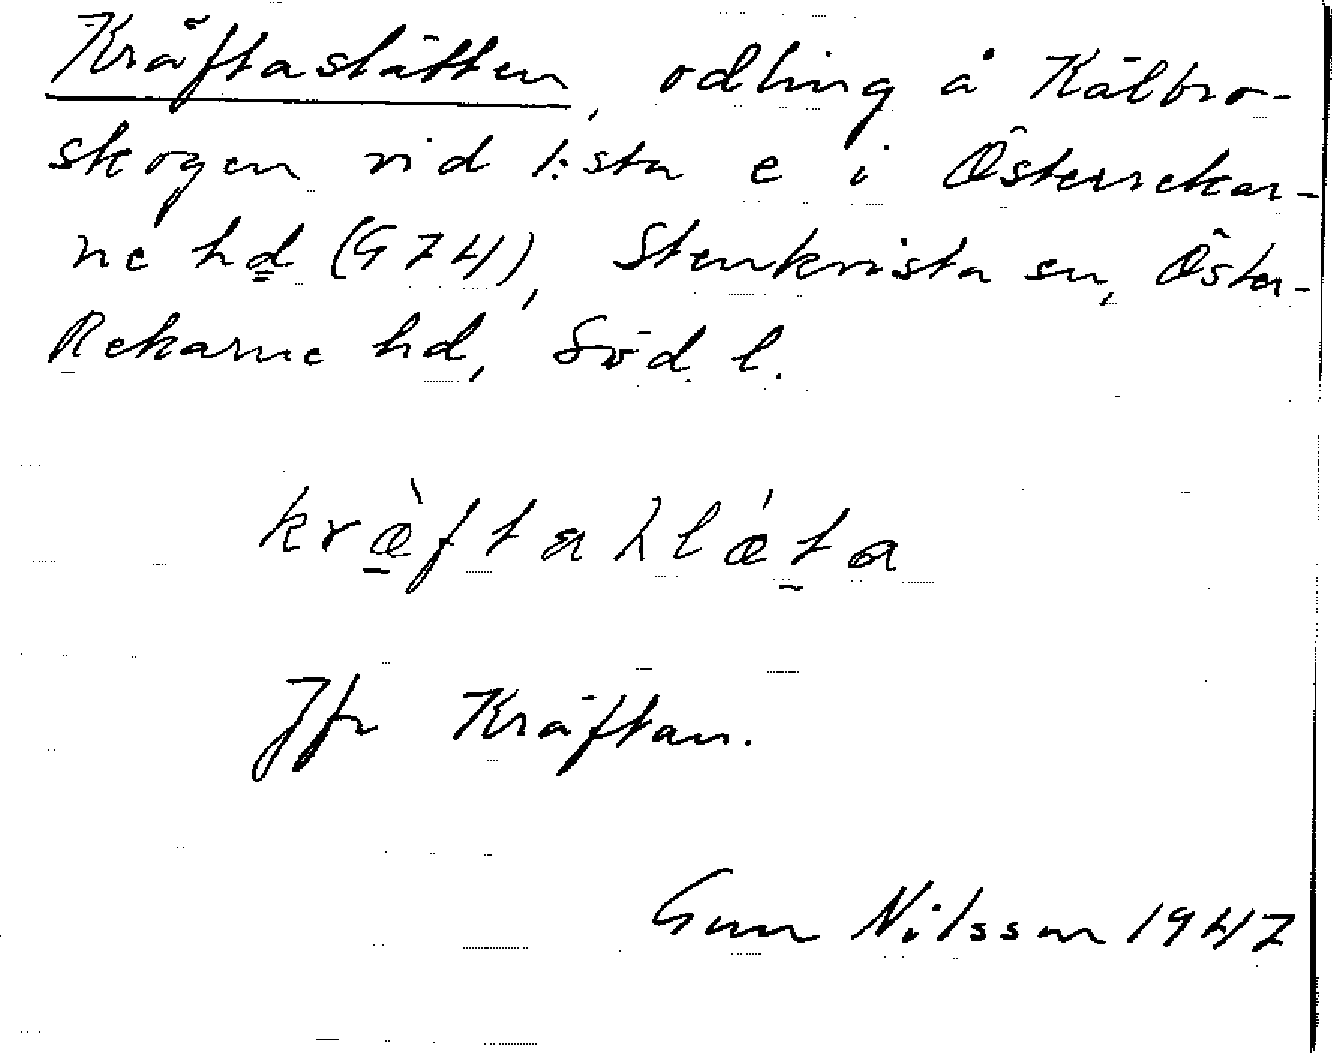 Kräftaslätten, odling å Kälbro-
skogen vid l:sta e i Österrekar-
ne hd (G74), Stenkvista sn, Öster-
Rekarne hd, Söd. l.
Jfr Kräftan.
Gun Nilsson 1947